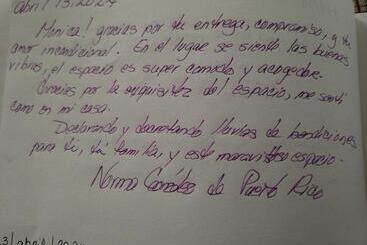 abril 13/2024
Monica! gracias por tu entrega, compromiso, y tu
amor incondicional. En el lugar se siente las buenas
vibras, el espacio es super comodo y acogedor.
Gracias por la exquisitez del espacio, me sentí
como en mi casa.
Declarando y decretando lluvias de bendiciones
para ti, tú familia, y este maravilloso espacio.
Norma González de Puerto Rico
3/abril/202